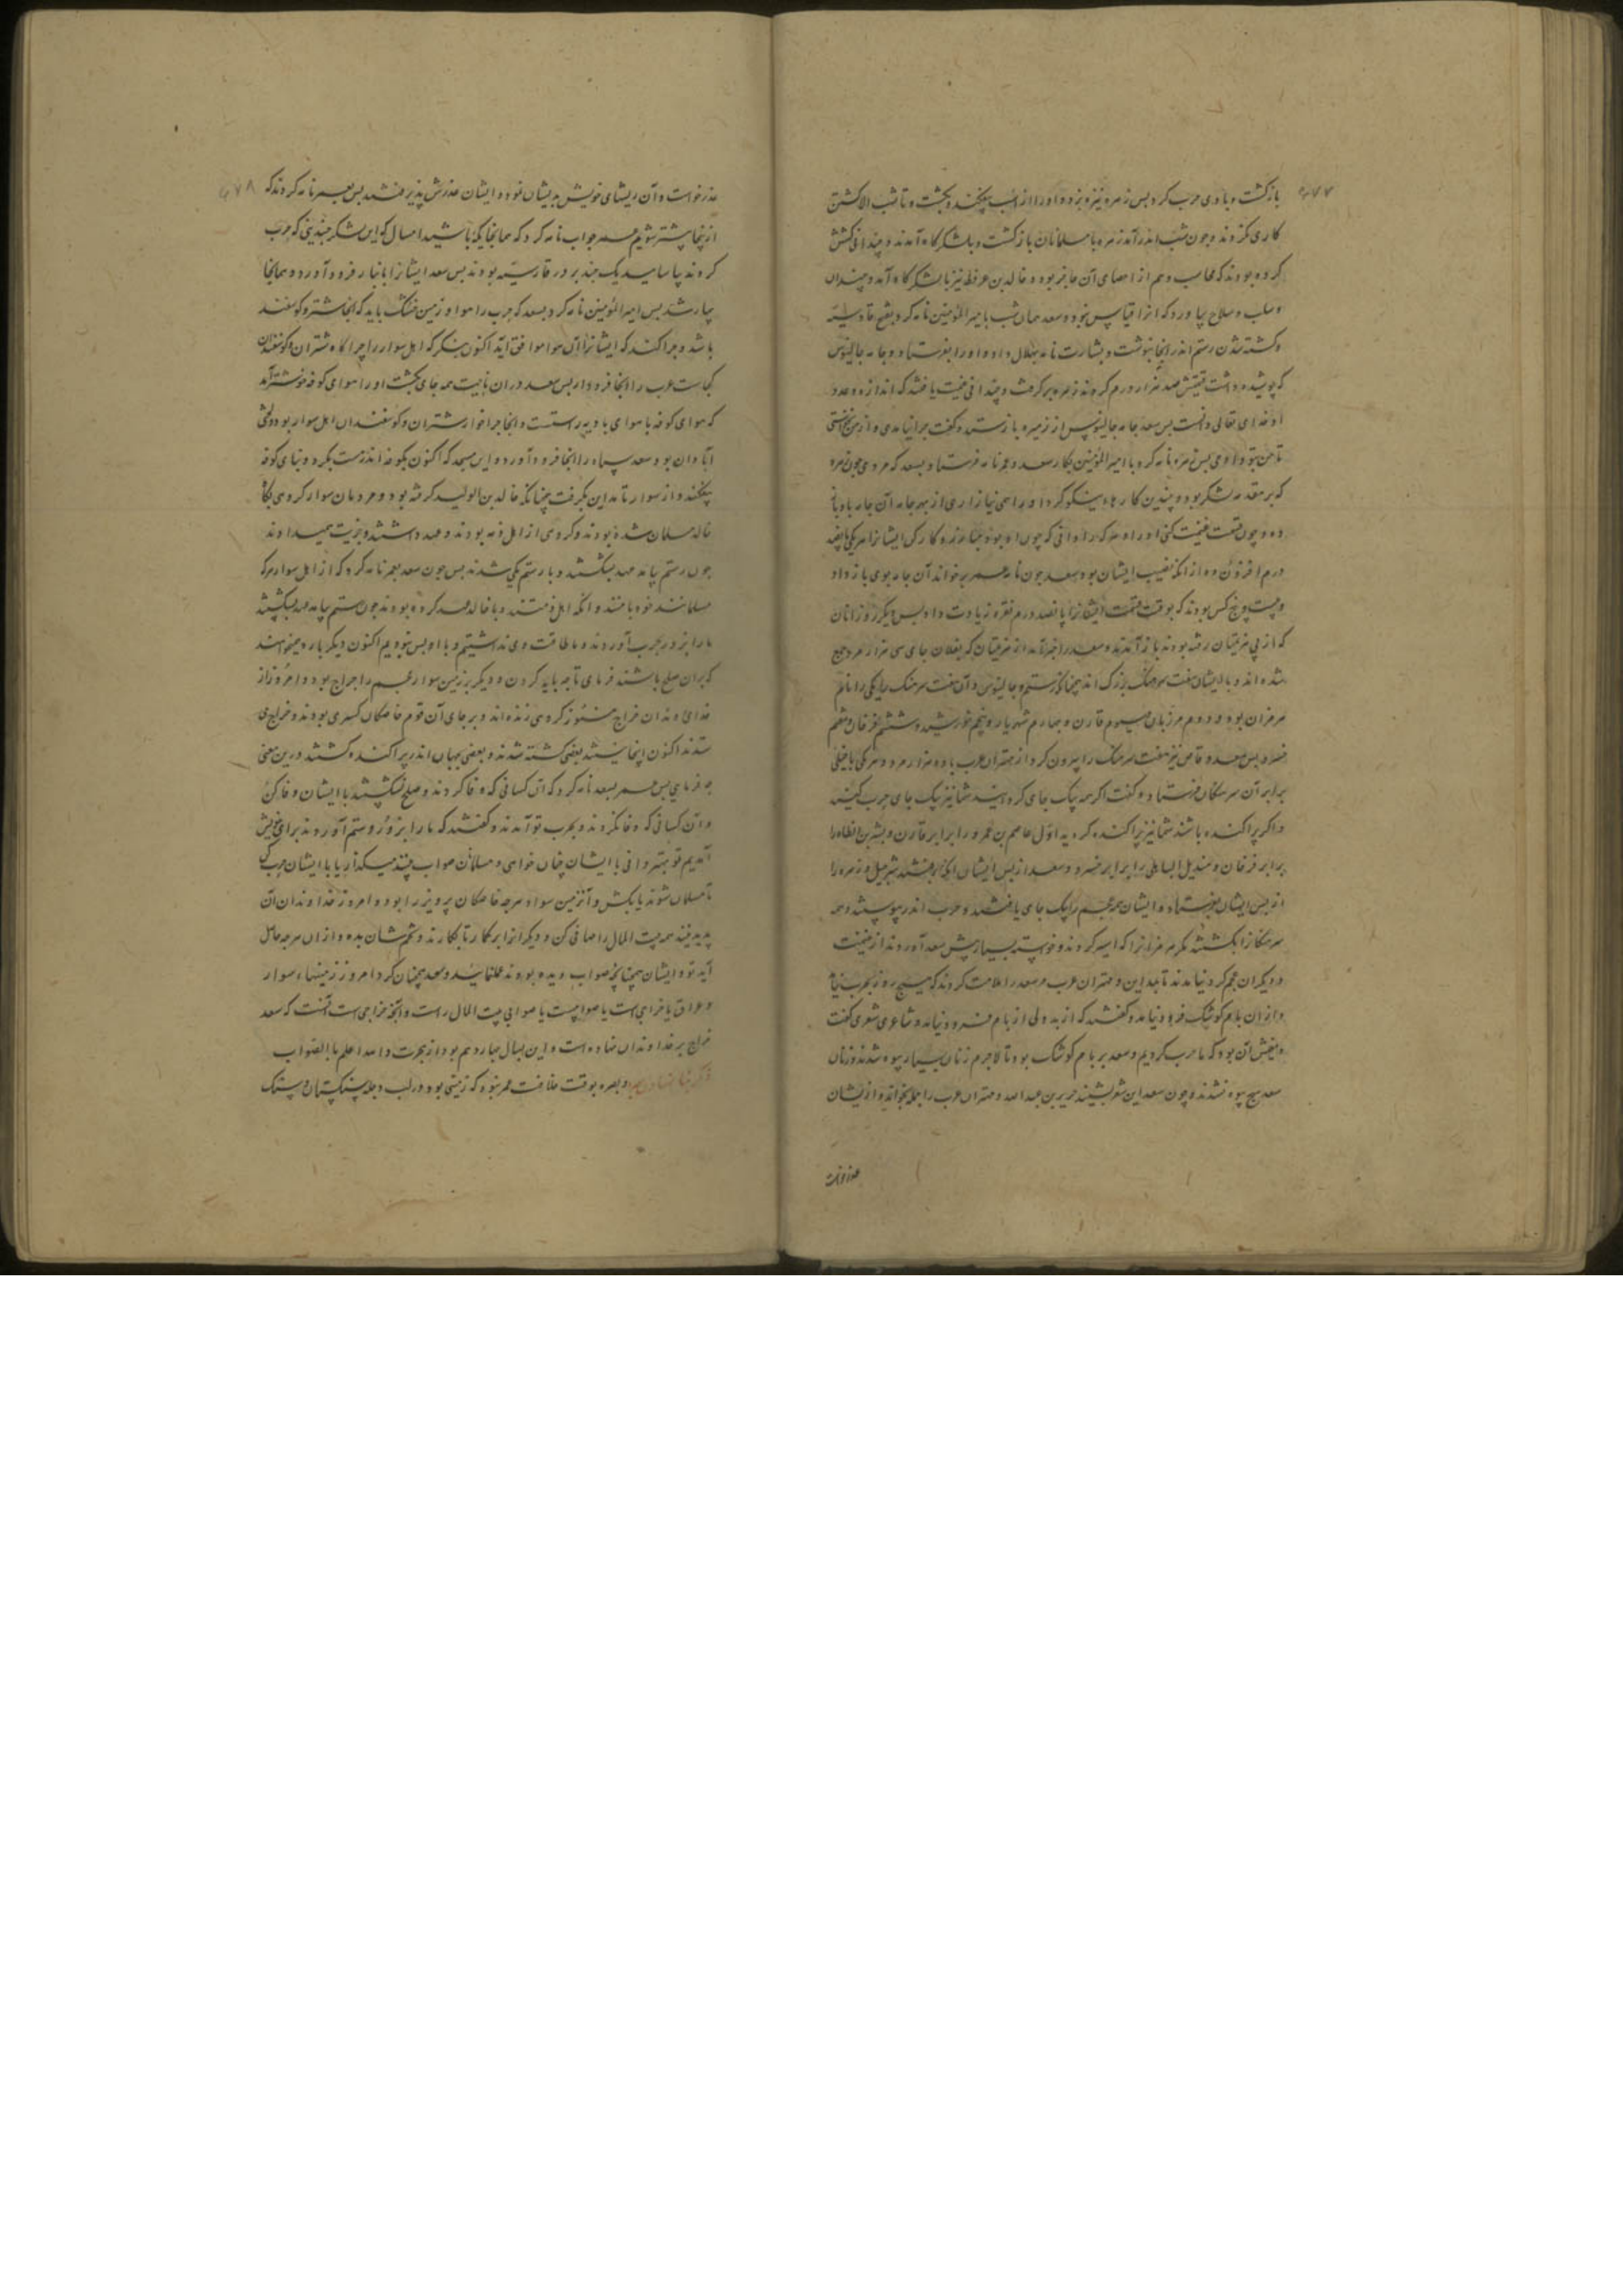 بازگشت و با وی حرب کرد پس زهره نیزه بزد و او را از اسب بیفکند و بکشت و تا شب الا کشتن
کاری نکردند و چون شب اندر آمد زهره با مسلمانان بازگشت و بلشکرگاه آمدند و چندانی کشش
کرده بودند که محاسب وهم از احصای آن عاجز بود و خالد بن عرفطه نیز بلشکرگاه آمد و چندان
و سلب و سلاح بیاورد که انرا قیاس نبود و سعد همان شب بامیر المؤمنین نامه کرد بفتح قادسیه
و کشته شدن رستم اندر انجا بنوشت و بشارت نامه بهلال داد و او را بفرستاد و جامه جالینوس
که پوشیده داشت قیمتش صد هزار درم کردند زهره برگرفت و چندانی غنیمت یافتند که اندازه و عدد
او خدای تعالی دانست پس سعد جامه جالینوس از زهره باز ستد و گفت چرا نیامدی و از من نخواستی
تا من بتو دادمی پس زهره نامه کرد با امیر المؤمنین بکار سعد و عمر نامه فرستاد بسعد که مردی چون زهره
که بر مقدمه لشکر بود و چندین کارهاء نیکو کرد او را همی نیازاری از بهر جامه آن جامه باو باز
ده و چون قسمت غنیمت کنی او را و هر که را دانی که چون او بوده ایشانرا هر یکی پانصد
درم افزون ده از انکه نصیب ایشان بود و سعد چون نامه عمر برخواند آن جامه بوی باز داد
و بیست و پنج کس بودند که بوقت قسمت ایشانرا پانصد درم نقره زیادت داد پس دیگر روز آنان
که از پی هزیمتیان رفته بودند باز آمدند و سعد را خبر آمد از هزیمتیان که بفلان جای سی هزار مرد جمع
شده اند و با ایشان هفت سرهنگ بزرگ اند همچنانکه رستم و جالینوس و آن هفت سرهنگ را یکی را نام
هرمزان بود و دوم مرزبان سیوم قارن و چهارم شهریار و پنجم خورشید و ششم فرخان و هفتم
خسرو پس سعد وقاص نیز هفت سرهنگ را بیرون کرد از مهتران عرب با ده هزار مرد و هر یکی با خیلی
برابر آن سرهنگان فرستاد و گفت اگر همه بیک جای گرد آیند شما نیز بیک جای حرب کنید
و اگر پراکنده باشند شما نیز پراکنده گردید اول عاصم بن عمرو را برابر قارن و
برابر فرخان و را برابر خسرو و سعد از پس ایشان و زهره را
از پس ایشان بفرستاد و ایشان همه عجم را بیک جای یافتند و حرب اندر پیوستند و همه
سرهنگانرا بکشتند مگر هرمزانرا که اسیر کردند و خواسته بسیار پیش سعد آوردند از غنیمت
و دیگران عجم گرد نیامدند تا بمداین و مهتران عرب مر سعد را ملامت کردند که هیچ روز بحرب نیامد
و از ان بام کوشک فرود نیامد و گفتند که از بد دلی از بام فرود نیامد و شاعری شعری گفت
و معنیش آن بود که ما حرب کردیم و سعد بر بام کوشک بود تا لاجرم زنان بسیار بیوه شدند و زنان
سعد هیچ بیوه نشدند و چون سعد این شعر بشنید جریر بن عبد الله و مهتران عرب را جمله بخواند و از یشان
عذر خواست
عذر خواست و آن ریشهای خویش بدیشان نمود و ایشان عذرش پذیرفتند پس بعمر نامه کردند که
از اینجا پیشتر شویم عمر جواب نامه کرد که همانجایگه باشید امسال که این لشکر چندینی که حرب
کردند بیاسایند یک چند بر در قادسیه بودند پس سعد ایشانرا بانبار فرود آورد و همانجا
بیمار شد پس امیر المؤمنین نامه کرد بسعد که عرب را هوا و زمین خشک باید که انجا شتر و گوسفند
باشد و چرا کند که ایشانرا آن هوا موافق آید اکنون بنگر که اهل سواد را چراگاه شتران و گوسفندان
کجاست عرب را انجا فرود آر پس سعد در ان ناحیت همه جای بگشت او را هوای کوفه خوشتر آمد
که هوای کوفه با هوای بادیه راستست و انجا چراخوار شتران و گوسفندان اهل سواد بود و لختی
آبادان بود سعد سپاه را انجا فرود آورد و این مسجد که اکنون بکوفه اندرست بکرد و بنیاد کوفه
بیفکند و از سواد تا مداین بگرفت چنانکه خالد بن الولید گرفته بود و مردمان سواد گروهی بگاه
خالد مسلمان شده بودند و گروهی از اهل ذمه بودند و عهد داشتند و جزیت همیدادند
چون رستم بیامد عهد بشکستند و با رستم یکی شدند پس چون سعد بعمر نامه کرد که از اهل سواد هر که
مسلمانند خود با منند و انکه اهل ذمتند و با خالد عهد کرده بودند چون رستم بیامد عهد بشکستند
ما را بزور بحرب آوردند و ما طاقت وی نداشتیم و با او بس نبودیم اکنون دیگر باره میخواهند
که بران صلح باشند فرمای تا چه باید کردن و دیگر بزمین سواد عجم را خراج بود و امروز از
خداوندان خراج هنوز گروهی زنده اند و بر جای آن قوم خاصگان کسری بودند و خراج می
ستدند اکنون اینجا نیستند بعضی کشته شدند و بعضی بجهان اندر پراکنده گشتند درین معنی
چه فرمایی پس عمر بسعد نامه کرد که آن کسانی که وفا کردند و صلح نشکستند با ایشان وفا کن
و آن کسانی که وفا نکردند و بحرب تو آمدند و گفتند که ما را بزور رستم آورد نه برای خویش
آمدیم تو بهتر دانی با ایشان چنان خواهی و مسلمانان صواب بینند میگذار یا با ایشان حرب کن
تا مسلمان شوند یا بکش و آنزمین سواد هر چه خاصگان پرویز را بود و امروز خداوندان آن
پدید نیند همه بیت المال را صافی کن و دیگر انرا برکار تا بکارند و تخم شان بده و از ان هر چه حاصل
آید تو و ایشان همچنانکه صواب دیده بودند و سعد همچنان کرد امروز زمینهاء سواد
و عراق یا خراجی است یا صوافیست یا صوافی بیت المال راست و آنکه خراجی است آنست که سعد
خراج بر خداوندان نهاده است و این بسال چهاردهم بود از هجرت و الله اعلم بالصواب
ذکر بنا نهادن بصره و بصره بوقت خلافت عمر نبود که زمینی بود در لب دجله سنگستان و سنگ